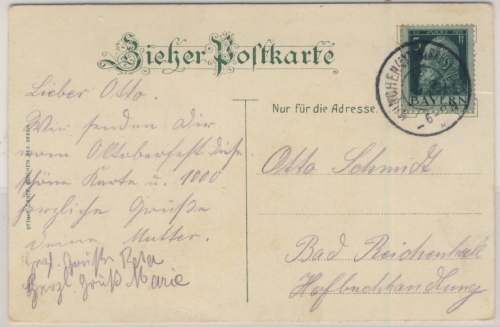 Zieher Postkarte
BAYERN
MÜNCHEN
Lieber Otto.
Nur für die Adresse.
Wir senden Dir
vom Oktoberfest diese
schöne Karte u. 1000
herzliche Grüße
deine Mutter.
Otto Schmidt
Bad Reichenhall
Hofbuchhandlung
Resa
Herzl. Gruß Marie